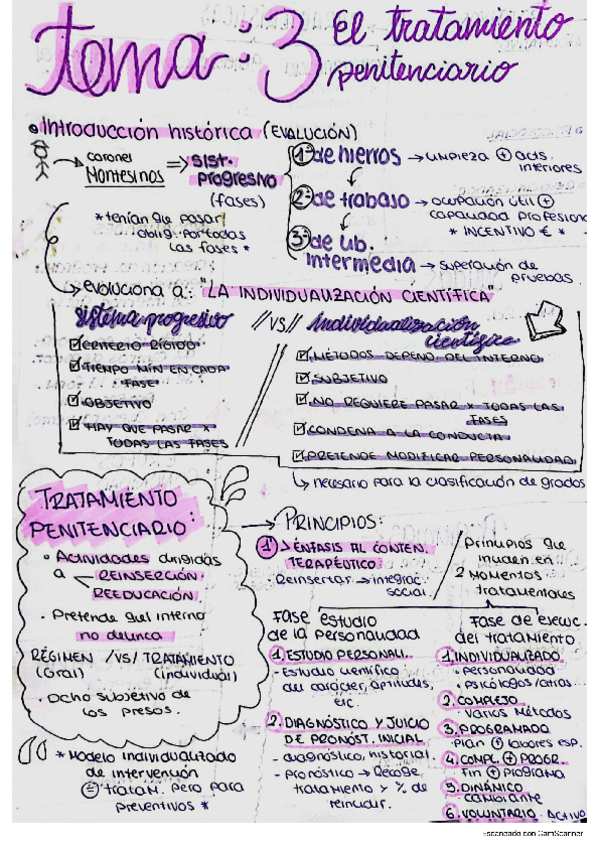 tema: 3 El tratamiento
penitenciario
Introducción histórica (EVOLUCIÓN)
coronel
Montesinos
⇒ sist.
progresivo
(fases)
1ª de hierros → LIMPIEZA ⊕ acts.
interiores
2ª de trabajo → ocupación útil ⊕
capacidad profesion
* INCENTIVO € *
3ª de lib.
intermedia → superación de
pruebas.
* tenían que pasar
oblig. por todas
las fases *
evoluciona a: "LA INDIVIDUALIZACIÓN CIENTÍFICA"
sistema progresivo //VS// individualización
científica
CRITERIO RÍGIDO
TIEMPO MÍN EN CADA
FASE
OBJETIVO
HAY QUE PASAR X
TODAS LAS FASES
MÉTODOS DEPEND. DEL INTERNO
SUBJETIVO
NO REQUIERE PASAR X TODAS LAS
FASES
CONDENA A LA CONDUCTA
PRETENDE MODIFICAR PERSONALIDAD
↳ necesario para la clasificación de grados
TRATAMIENTO
PENITENCIARIO:
• Actividades dirigidas
a REINSERCIÓN.
REEDUCACIÓN.
• Pretende q el interno
no delinca
RÉGIMEN /VS/ TRATAMIENTO
(Gral) (individual)
• Dcho subjetivo de
los presos.
* Modelo individualizado
de intervención
⊜ tratam. pero para
preventivos *
→ PRINCIPIOS:
1º > ÉNFASIS AL CONTEN.
TERAPÉUTICO
Reinsertar → integrac.
social.
Principios que
inciden en
2 MOMENTOS
tratamentales
Fase estudio
de la personalidad
1. ESTUDIO PERSONALI..
- Estudio científico
del carácter, aptitudes,
etc.
2. DIAGNÓSTICO Y JUICIO
DE PRONÓST. INICIAL
- diagnóstico, historial.
- pronóstico → Recoge
tratamiento y % de
reincidir.
Fase de ejecuc.
del tratamiento
1. INDIVIDUALIZADO
• personalidad
• psicólogos/otras...
2. COMPLEJO
varios métodos
3. PROGRAMADO
Plan ⊕ labores esp.
4. COMPL. ⊕ PROGR.
Fin ⊕ programa
5. DINÁMICO
cambiante
6. VOLUNTARIO. ACTIVO
Escaneado con CamScanner